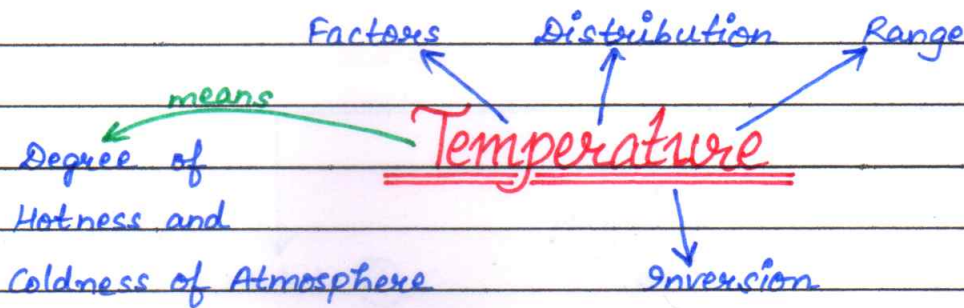 Factors Distribution Range
means
Temperature
Degree of
Hotness and
Coldness of Atmosphere
Inversion